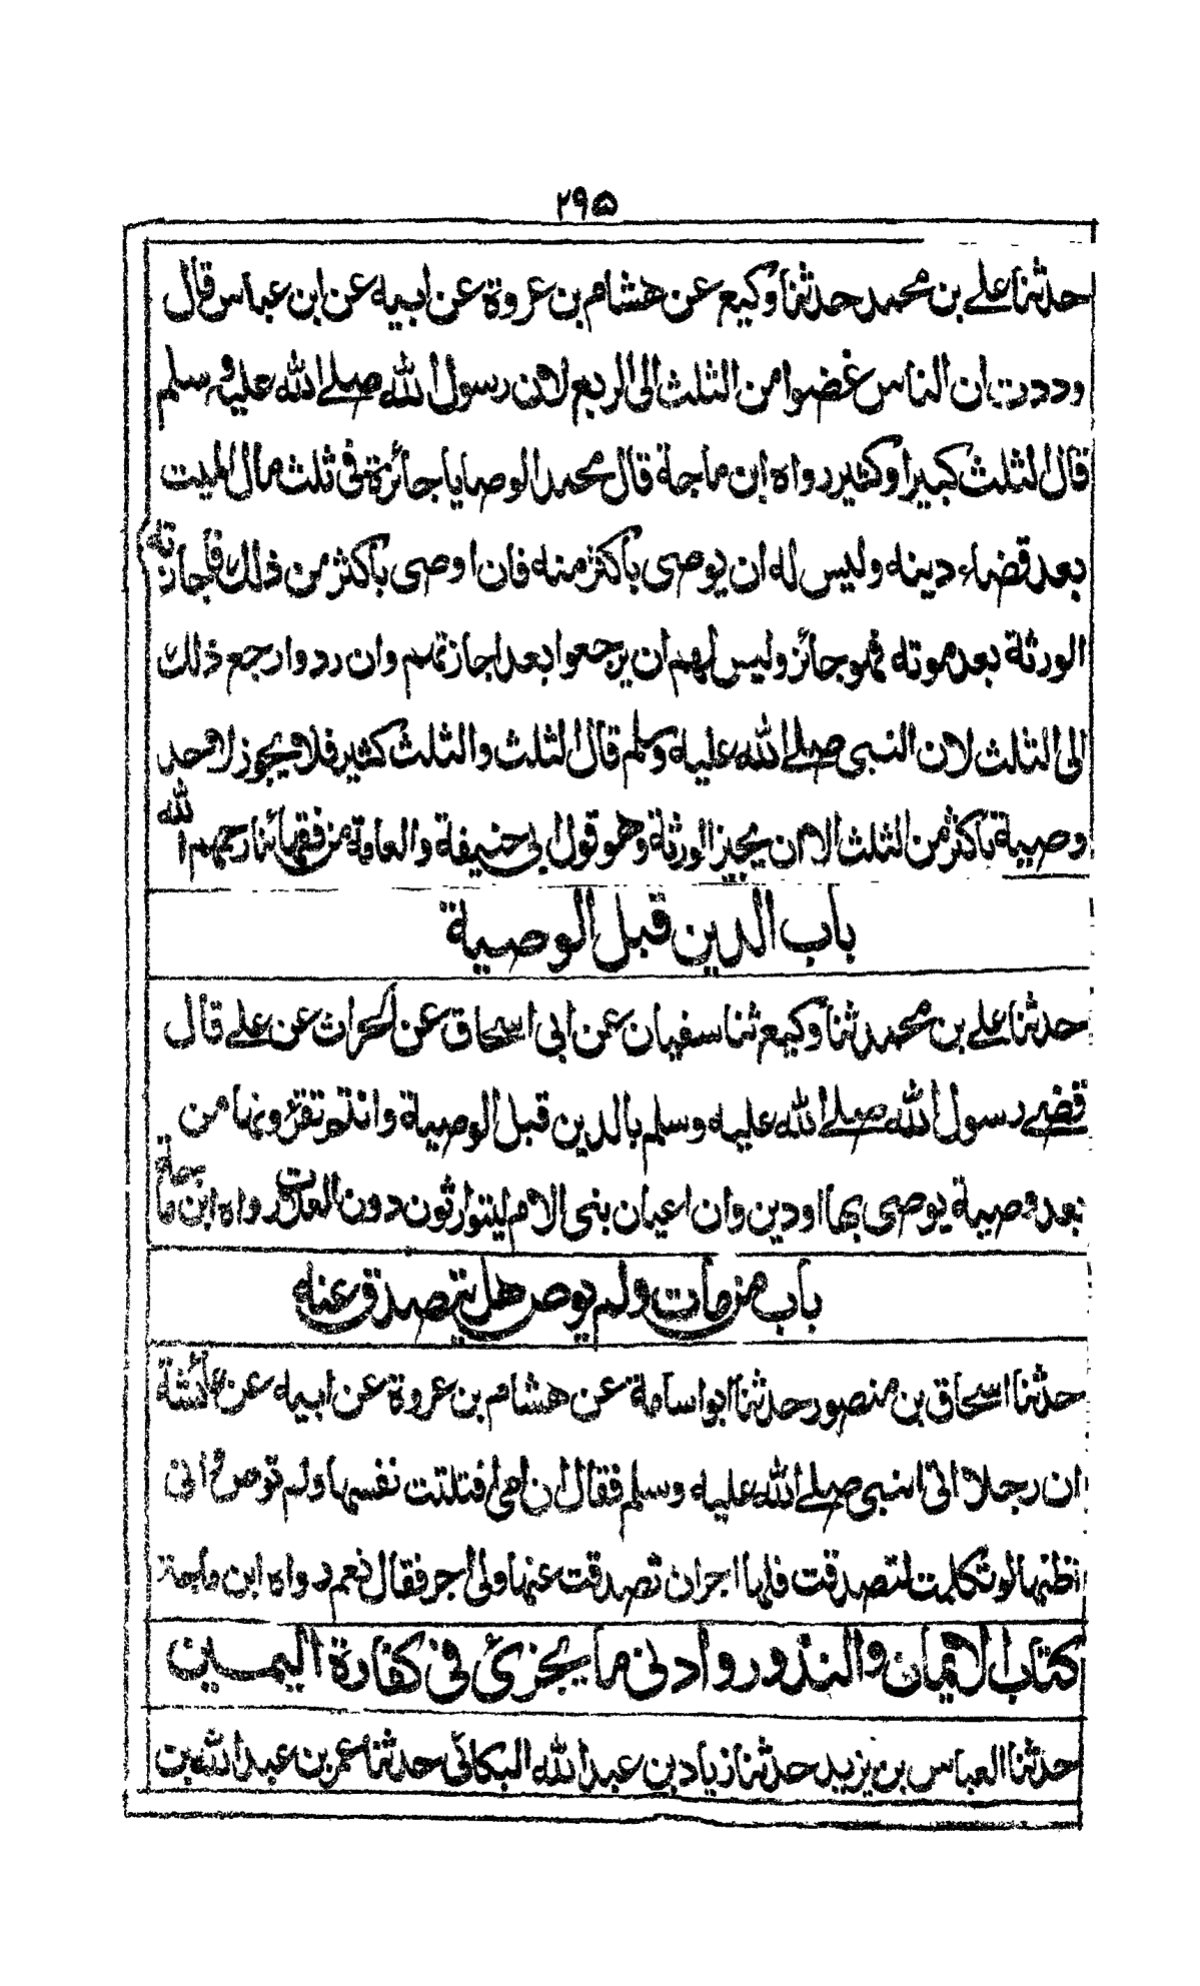 ۲۹۵
حدثنا علے بن محمد حدثنا وكيع عن هشام بن عروة عن ابيه عن ابن عباس قال
وددت ان الناس غضوا من الثلث الى الربع لان رسول الله صلے الله عليه وسلم
قال الثلث كبير او كثير رواه ابن ماجة قال محمد الوصايا جائزة فى ثلث مال الميت
بعد قضاء دينه وليس له ان يوصى باكثر منه فان اوصى باكثر من ذلك فاجازته
الورثة بعد موته فهو جائز وليس لهم ان يرجعوا بعد اجازتهم وان ردوا رجع ذلك
الى الثلث لان النبى صلے الله عليه وسلم قال الثلث والثلث كثير فلا يجوز لاحد
وصية باكثر من الثلث الا ان يجيز الورثة وهو قول ابى حنيفة والعامة من فقهائنا رحمهم الله
باب الدين قبل الوصية
حدثنا علے بن محمد ثنا وكيع ثنا سفيان عن ابى اسحاق عن الحراث عن علے قال
قضے رسول الله صلے الله عليه وسلم بالدين قبل الوصية وانتم تقرونها من
بعد وصية يوصى بها او دين وان اعيان بنى الام ليتوارثون دون العلات رواه ابن ماجة
باب من مات ولم يوص هل يتصدق عنه
حدثنا اسحاق بن منصور حدثنا ابو اسامة عن هشام بن عروة عن ابيه عن عائشة
ان رجلا اتى النبى صلے الله عليه وسلم فقال ان امى افتلتت نفسها ولم توص وانى
اظنها لو تكلمت لتصدقت فلها اجر ان تصدقت عنها ولى اجر فقال نعم رواه ابن ماجة
كتاب الايمان والنذور وادنى ما يجزئ فى كفارة اليمين
حدثنا العباس بن يزيد حدثنا زياد بن عبد الله البكائى حدثنا عمر بن عبد الله بن